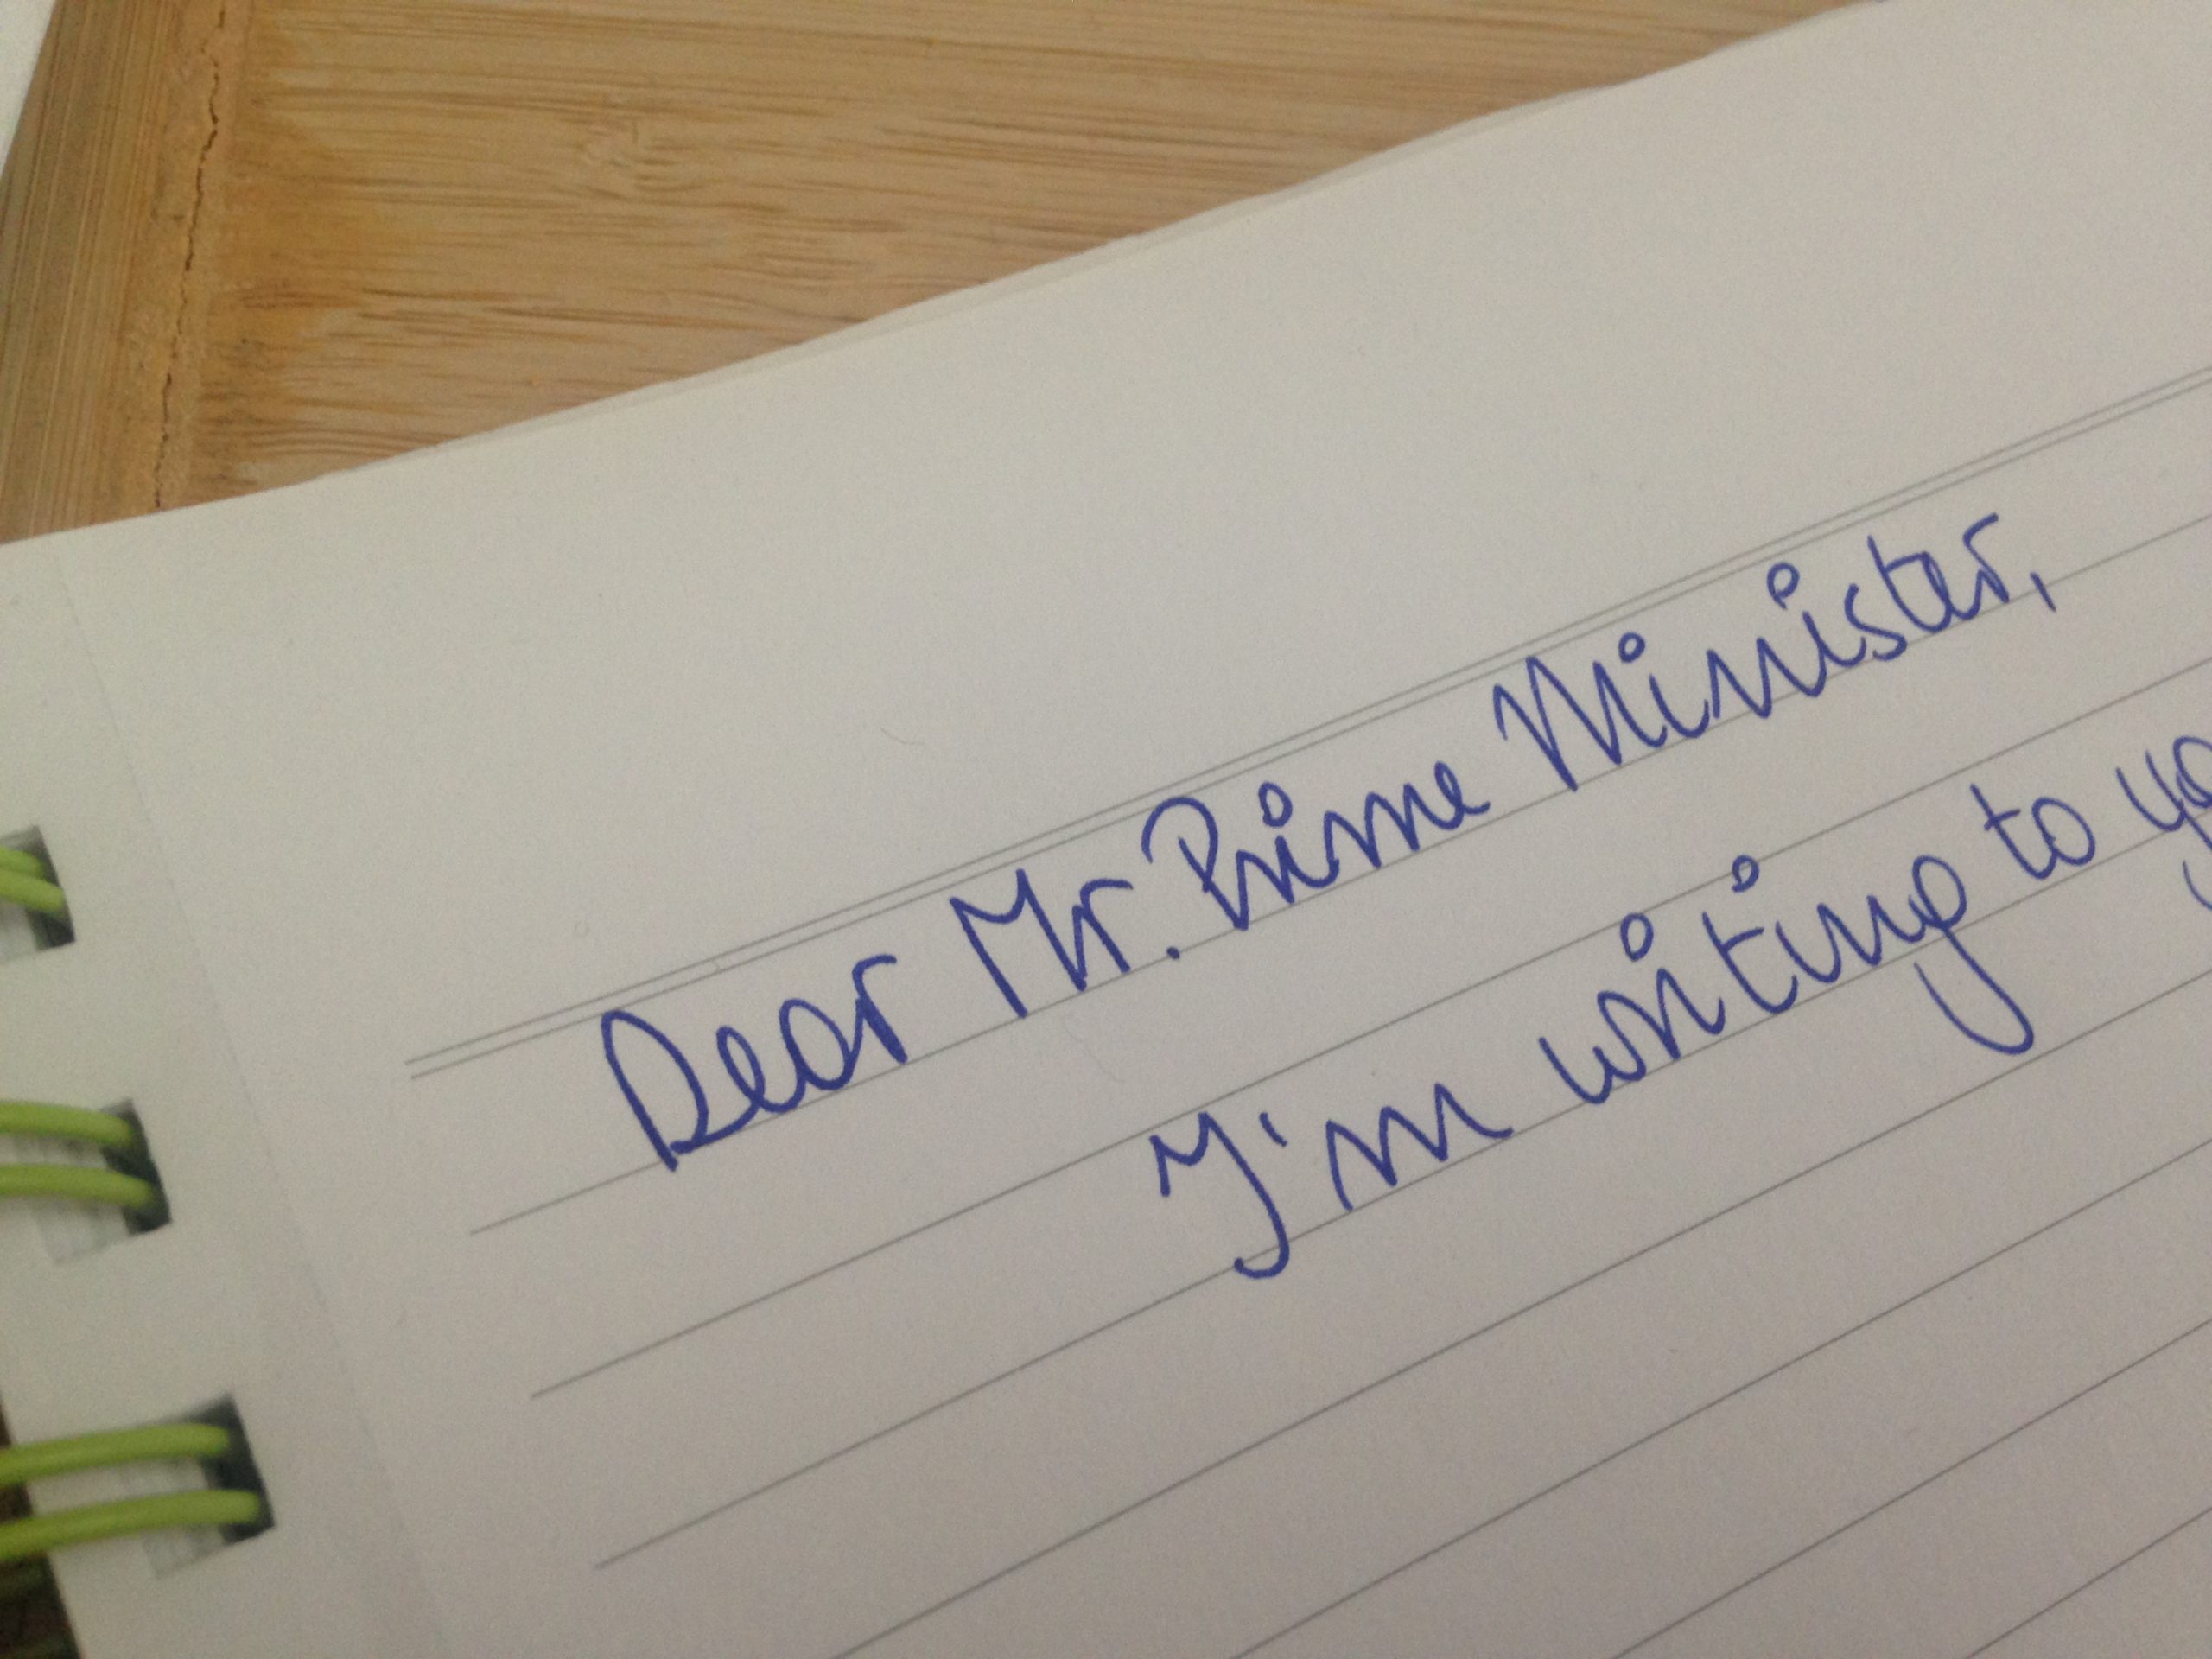 Dear Mr. Prime Minister,
I'm writing to yo